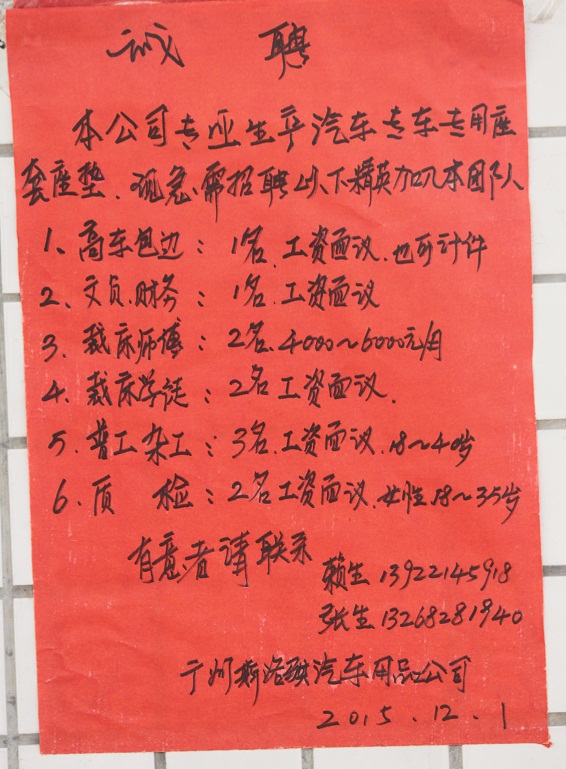 诚 聘
本公司专业生产汽车专车专用座
套座垫、现急需招聘以下精英加入本团队
1、高车包边：1名、工资面议、也可计件
2、文员、财务：1名、工资面议
3、裁床师傅：2名、4000~6000元/月
4、裁床学徒：2名工资面议、
5、普工杂工：3名、工资面议、18~4岁
6、质 检：2名工资面议、女性18~35岁
有意者请联系
赖生 13922145918
张生 13268281940
汽车用品公司
2015.12.1